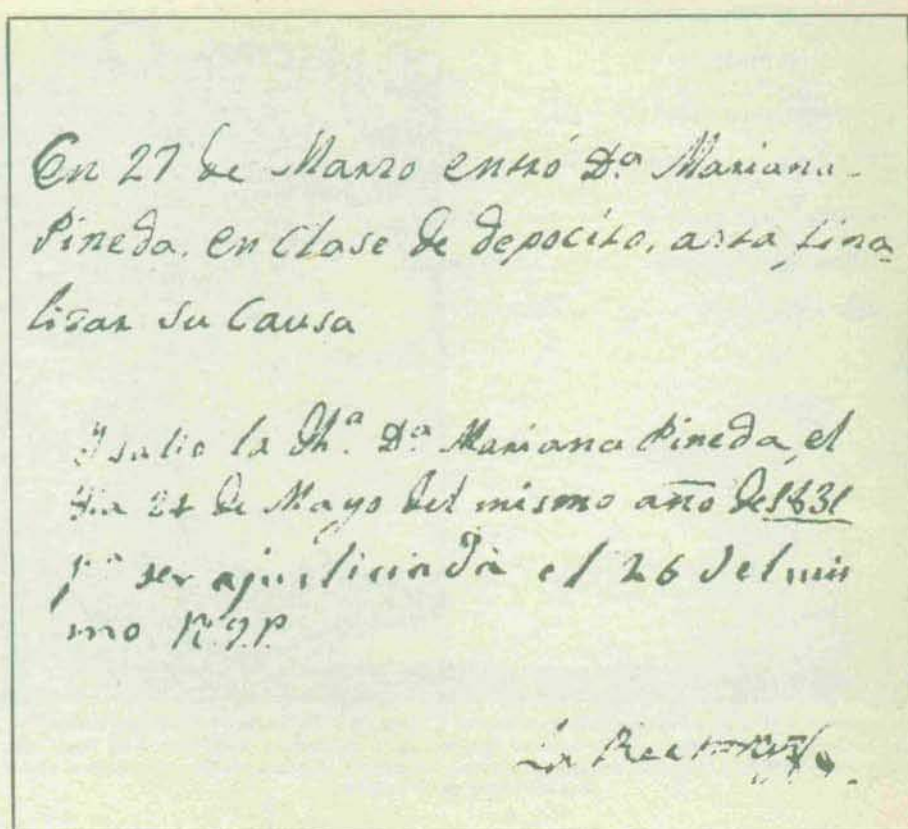 En 27 de Marzo entró Dª Mariana
Pineda. en Clase de depocito, asta fina
lisar su Causa
Y salio la Dhª. Dª Mariana Pineda, el
dia 24 de Mayo del mismo año de 1831
pª ser ajusticiada el 26 del mis
mo R.I.P.
La